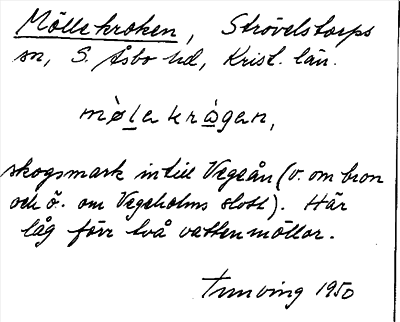 Möllekroken, Strövelstorps
sn, S. Åsbo hd, Krist. län.
mø̀lekrògen,
skogsmark intill Vegeån (v. om bron
och ö. om Vegeholms slott). Här
låg förr två vattenmöllor.
1950